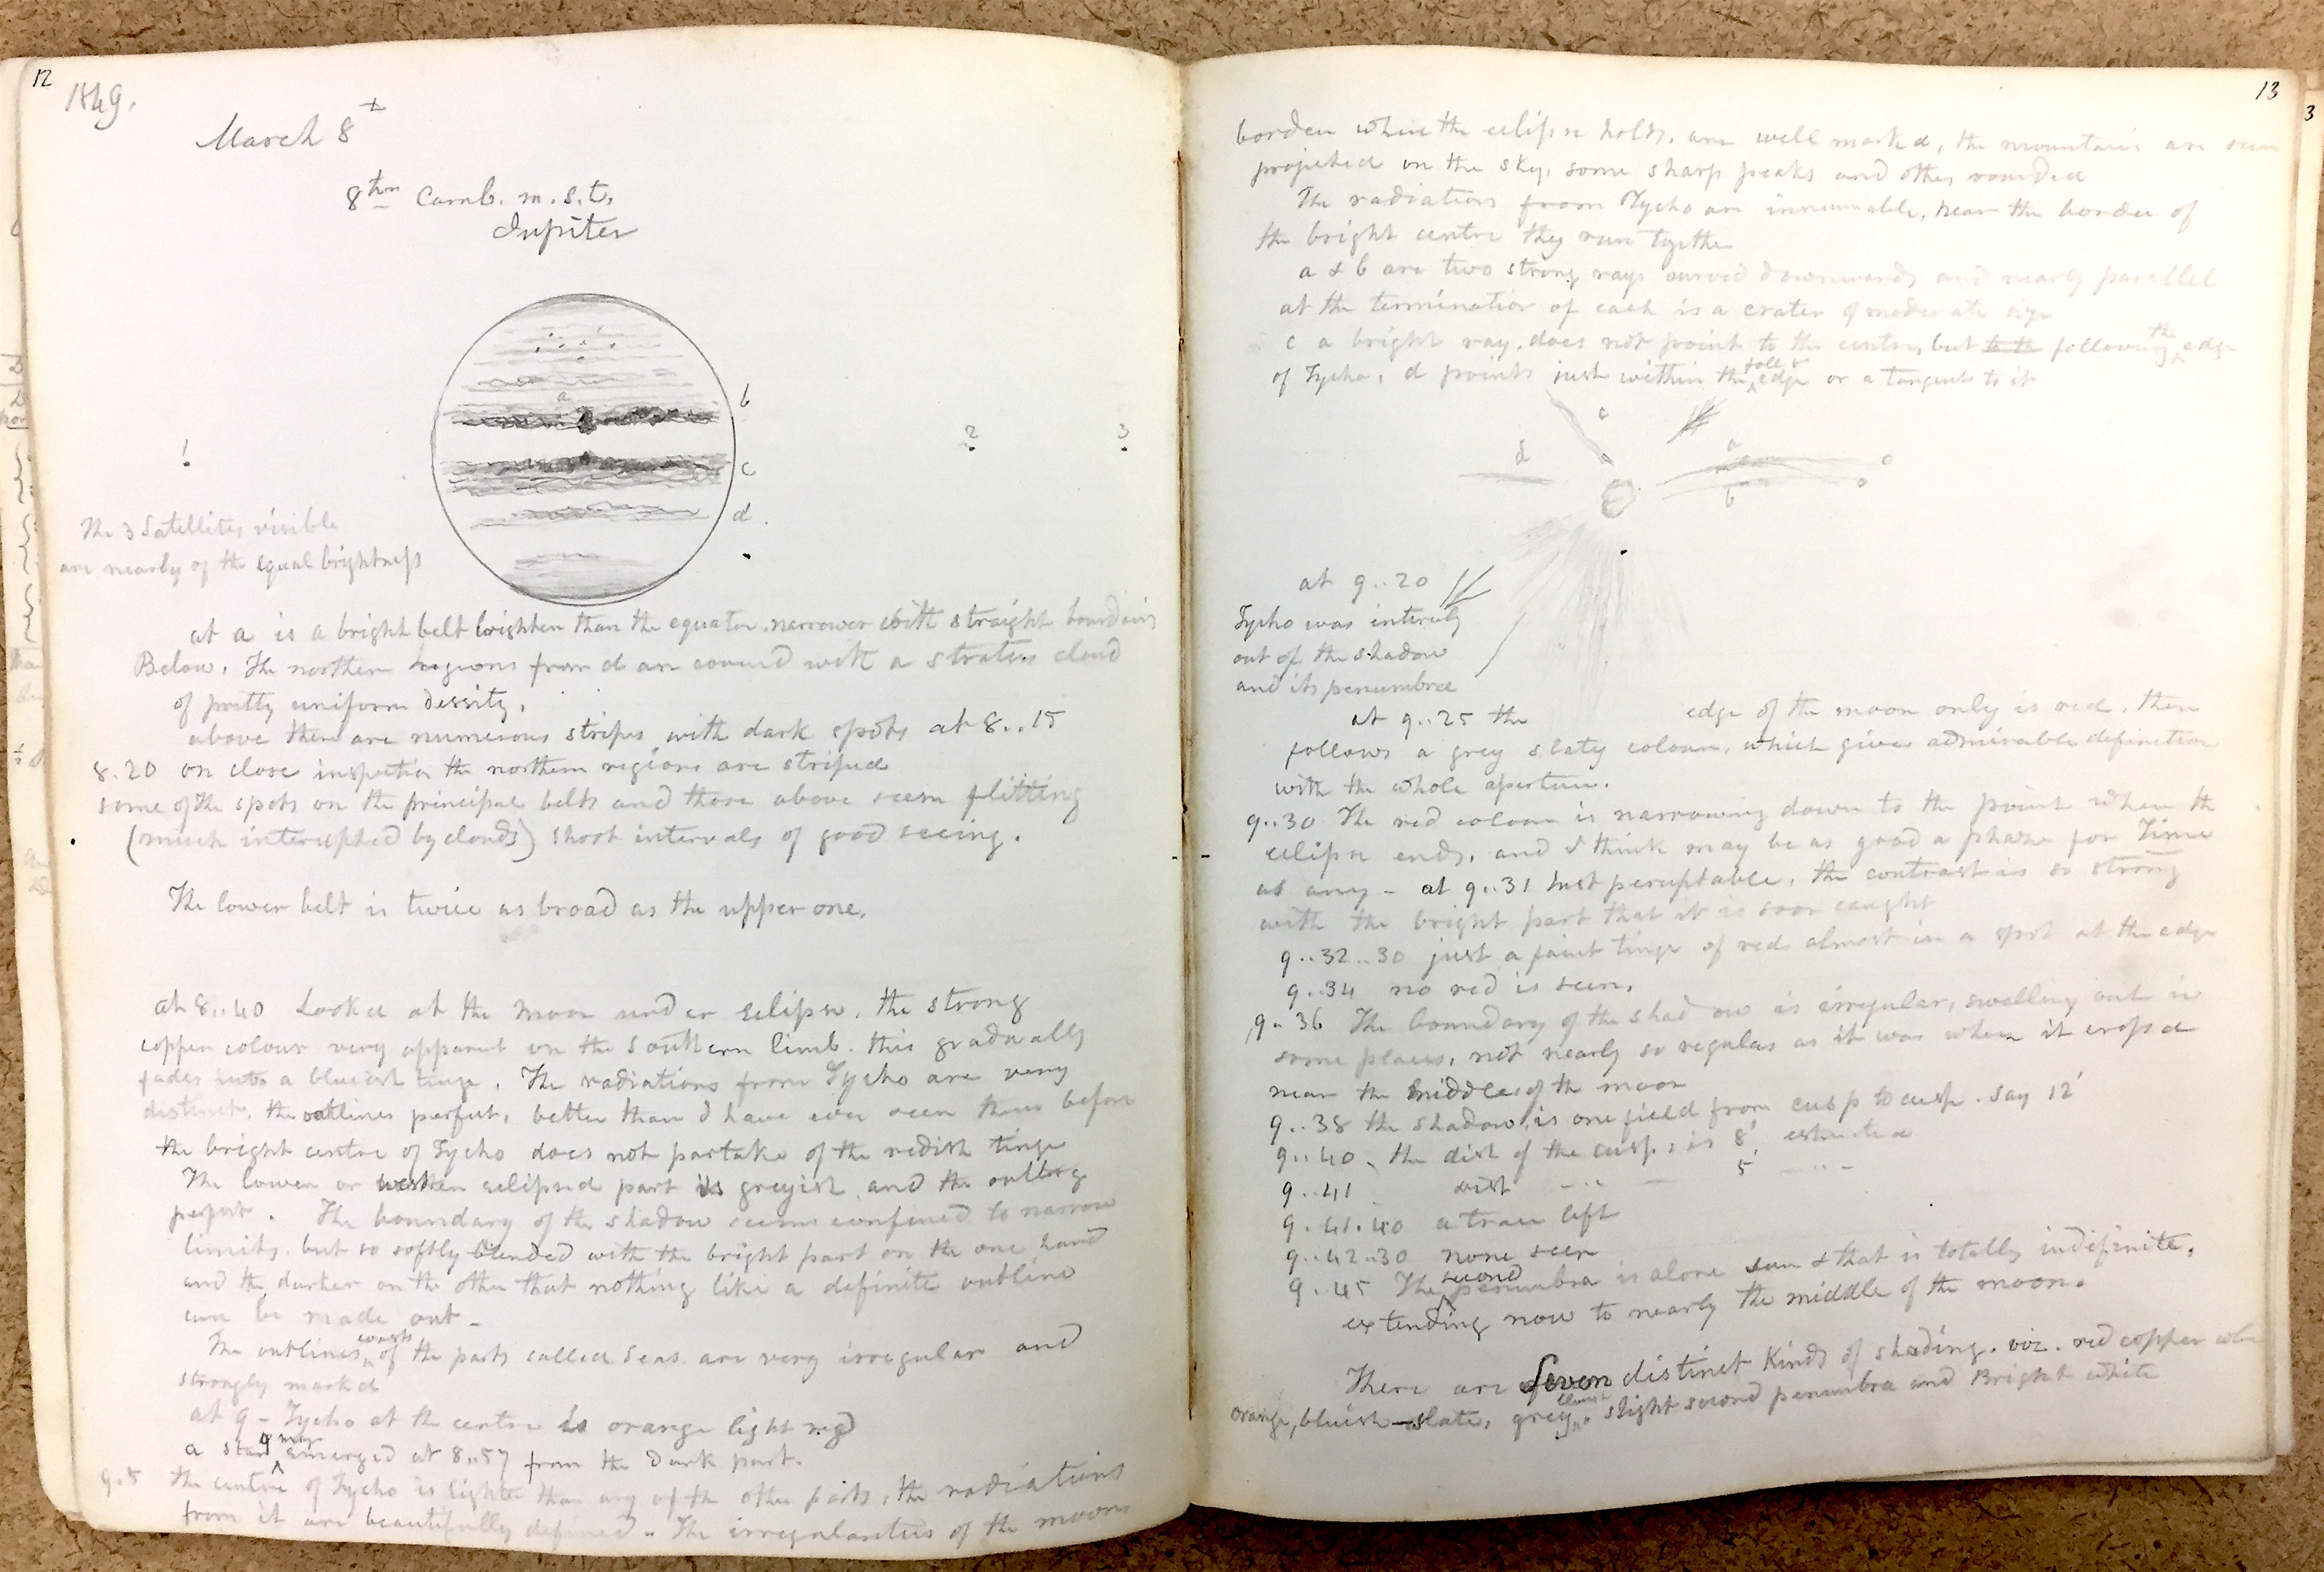 12
1849.
March 8th
8hm Camb. m. s. t.
Jupiter
a
b
1 2 3
c
d.
The 3 Satellites visible
are nearly of the equal brightness
at a is a bright belt brighter than the equator narrower with straight
Below. The northern regions from d are covered with a stratus cloud
of pretty uniform
above there are numerous stripes with dark spots at 8..15
8.20 on close inspection the northern regions are striped
some of the spots on the principal belts and those above seem flitting
(much interupted by clouds) short intervals of good seeing.
The lower belt is twice as broad as the upper one.
at 8..40 Looked at the Moon under eclipse. the strong
copper colour very apparent on the southern limb. this gradually
fades into a blueish tinge. The radiations from Tycho are very
distinct, the outlines perfect, better than I have ever seen them before
the bright centre of Tycho does not partake of the redish tinge
The lower or eclipsed part is greyish and the outline
perfect. The boundary of the shadow seems confined to narrow
limits. but so softly blended with the bright part on the one hand
and the darker on the other that nothing like a definite outline
can be made out -
The outlines of the parts called Seas are very irregular and
strongly marked
at 9 - Tycho at the centre is orange light red
a star emerged at 8..57 from the dark part.
9.5 the centre of Tycho is lighter than any of the other parts, the radiations
from it are beautifully defined.. The irregularities of the moons
13
3
border where the eclipse holds, are well marked, the mountains are seen
projected on the sky, some sharp peaks and others rounded
The radiations from Tycho are innumerable, near the border of
the bright centre they run together
a & b are two strong rays curved downwards and nearly parallel
at the termination of each is a crater of moderate size
c a bright ray, does not point to the centre, but to the following the edge
of Tycho, d points just within the foll g edge or a tangent to it
c
d
a
b
at 9..20
Tycho was
out of the shadow
and its penumbra
at 9..25 the edge of the moon only is red, then
follows a grey slaty colour, which gives admirable definition
with the whole aperture.
9..30 The red colour is narrowing down to the point where the
eclipse ends, and I think may be as good a phase for Time
as any - at 9..31 Just perceptable, the contrast is so strong
with the bright part that it is soon caught
9..32..30 just a faint tinge of red almost in a spot at the edge
9..34 no red is seen.
9..36 The boundary of the shadow is irregular, swelling out in
some places, not nearly so regular as it was when it crossed
near the middle of the moon
9..38 the shadow is one field from cusp to cusp. say 12'
9..40 the dist of the cusps is 8' estimated
9..41 dist - .. - 5' - .. -
9.41.40 a trace left
9..42..30 none seen
9..45 The second penumbra is alone seen & that is totally indefinite,
extending now to nearly the middle of the moon.
There are seven distinct kinds of shading. viz. red copper
orange, bluish-slate, grey, slight second penumbra and Bright white